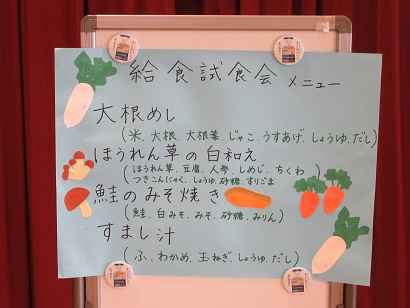 給食試食会 メニュー
大根めし
(米、大根、大根葉、じゃこ、うすあげ、しょうゆ、だし)
ほうれん草の白和え
(ほうれん草、豆腐、人参、しめじ、ちくわ
つきこんにゃく、しょうゆ、砂糖、すりごま)
鮭のみそ焼き
(鮭、白みそ、みそ、砂糖、みりん)
すまし汁
(ふ、わかめ、玉ねぎ、しょうゆ、だし)